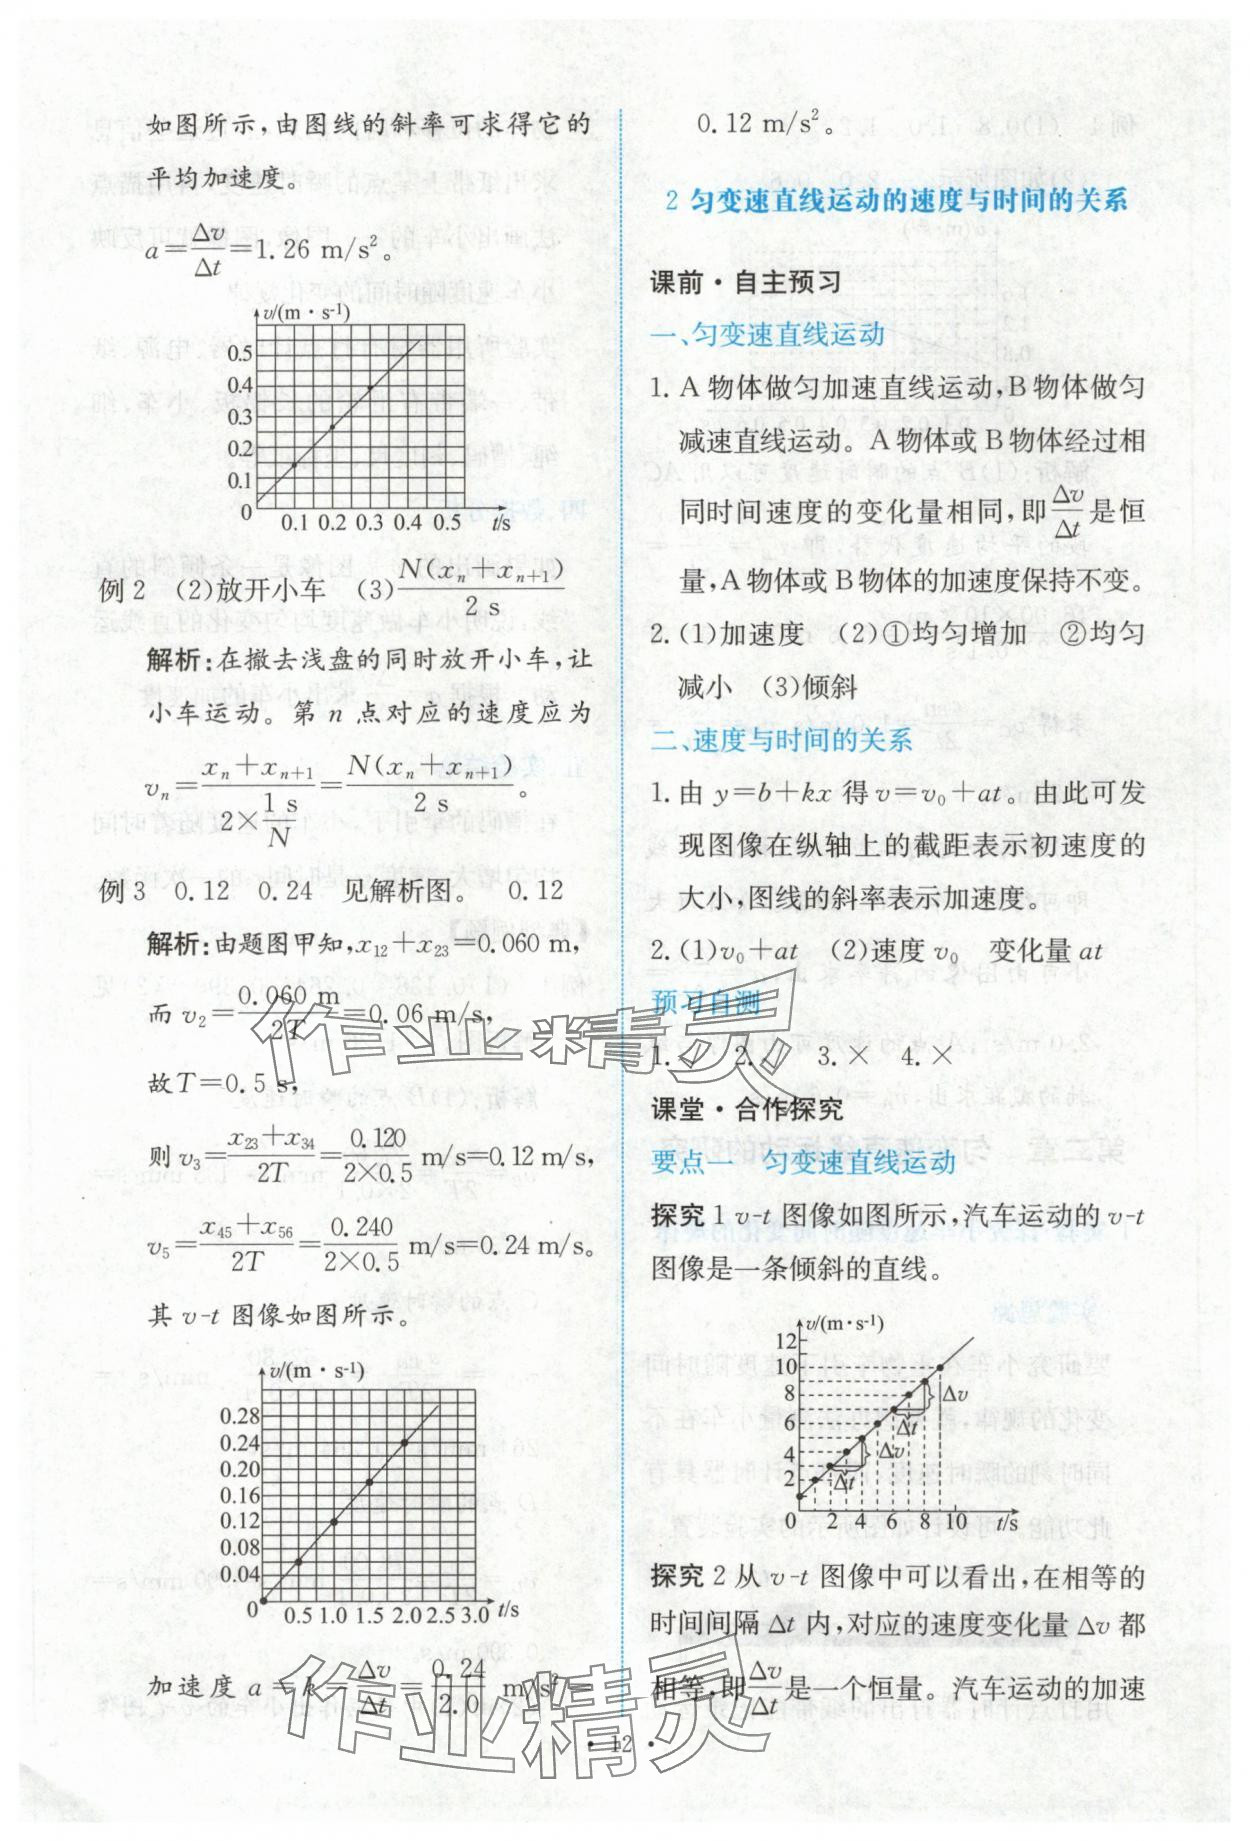 如图所示,由图线的斜率可求得它的
平均加速度。
a=Δv/Δt=1.26 m/s²。
v/(m·s⁻¹)
0.5
0.4
0.3
0.2
0.1
0 0.1 0.2 0.3 0.4 0.5 t/s
例2 (2)放开小车 (3)N(xₙ+xₙ₊₁)/2 s
解析:在撤去浅盘的同时放开小车,让
小车运动。第 n 点对应的速度应为
vₙ=(xₙ+xₙ₊₁)/(2×1 s/N)=N(xₙ+xₙ₊₁)/2 s。
例3 0.12 0.24 见解析图。 0.12
解析:由题图甲知,x₁₂+x₂₃=0.060 m,
而 v₂=0.060 m/2T=0.06 m/s,
故T=0.5 s,
则 v₃=(x₂₃+x₃₄)/2T=0.120/(2×0.5) m/s=0.12 m/s,
v₅=(x₄₅+x₅₆)/2T=0.240/(2×0.5) m/s=0.24 m/s。
其 v-t 图像如图所示。
v/(m·s⁻¹)
0.28
0.24
0.20
0.16
0.12
0.08
0.04
0 0.5 1.0 1.5 2.0 2.5 3.0 t/s
加速度 a=k=Δv/Δt=0.24/2.0 m/s²=
0.12 m/s²。
2 匀变速直线运动的速度与时间的关系
课前·自主预习
一、匀变速直线运动
1. A 物体做匀加速直线运动,B 物体做匀
减速直线运动。A 物体或 B 物体经过相
同时间速度的变化量相同,即Δv/Δt是恒
量,A 物体或 B 物体的加速度保持不变。
2. (1)加速度 (2)①均匀增加 ②均匀
减小 (3)倾斜
二、速度与时间的关系
1. 由 y=b+kx 得 v=v₀+at。由此可发
现图像在纵轴上的截距表示初速度的
大小,图线的斜率表示加速度。
2. (1)v₀+at (2)速度 v₀ 变化量 at
预习自测
1. √ 2. √ 3. × 4. ×
课堂·合作探究
要点一 匀变速直线运动
探究 1 v-t 图像如图所示,汽车运动的 v-t
图像是一条倾斜的直线。
v/(m·s⁻¹)
12
10
8
6
4
2
0 2 4 6 8 10 t/s
Δv
Δt
Δv
Δt
探究 2 从 v-t 图像中可以看出,在相等的
时间间隔 Δt 内,对应的速度变化量 Δv 都
相等,即Δv/Δt是一个恒量。汽车运动的加速
· 12 ·
作业精灵
作业精灵